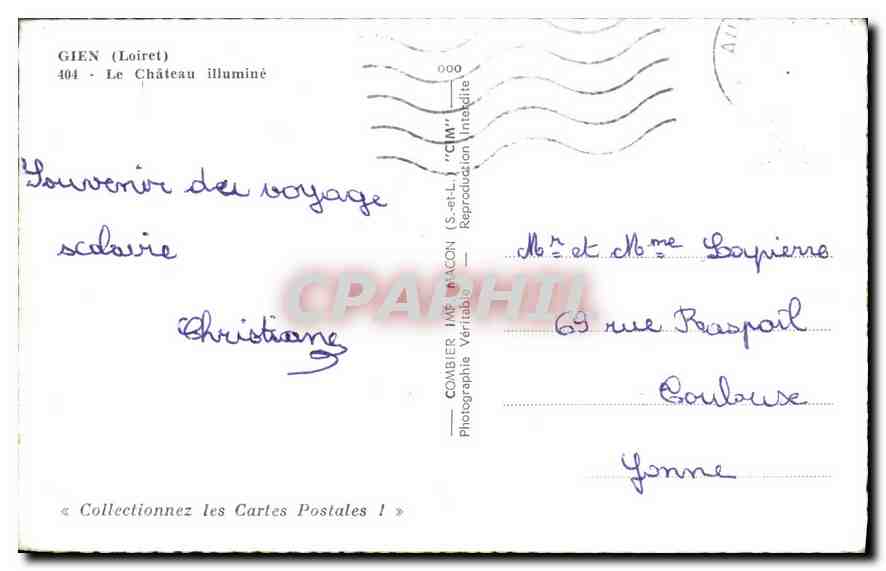 GIEN (Loiret)
404 - Le Château illuminé
Souvenir du voyage
scolaire
Christiane
« Collectionnez les Cartes Postales ! »
000
COMBIER IMP. MACON (S.-et-L.) "CIM"
Photographie Véritable - Reproduction Interdite
CPAPHIL
Mr et Mme Lapierre
69 rue Raspail
Toulouse
Yonne